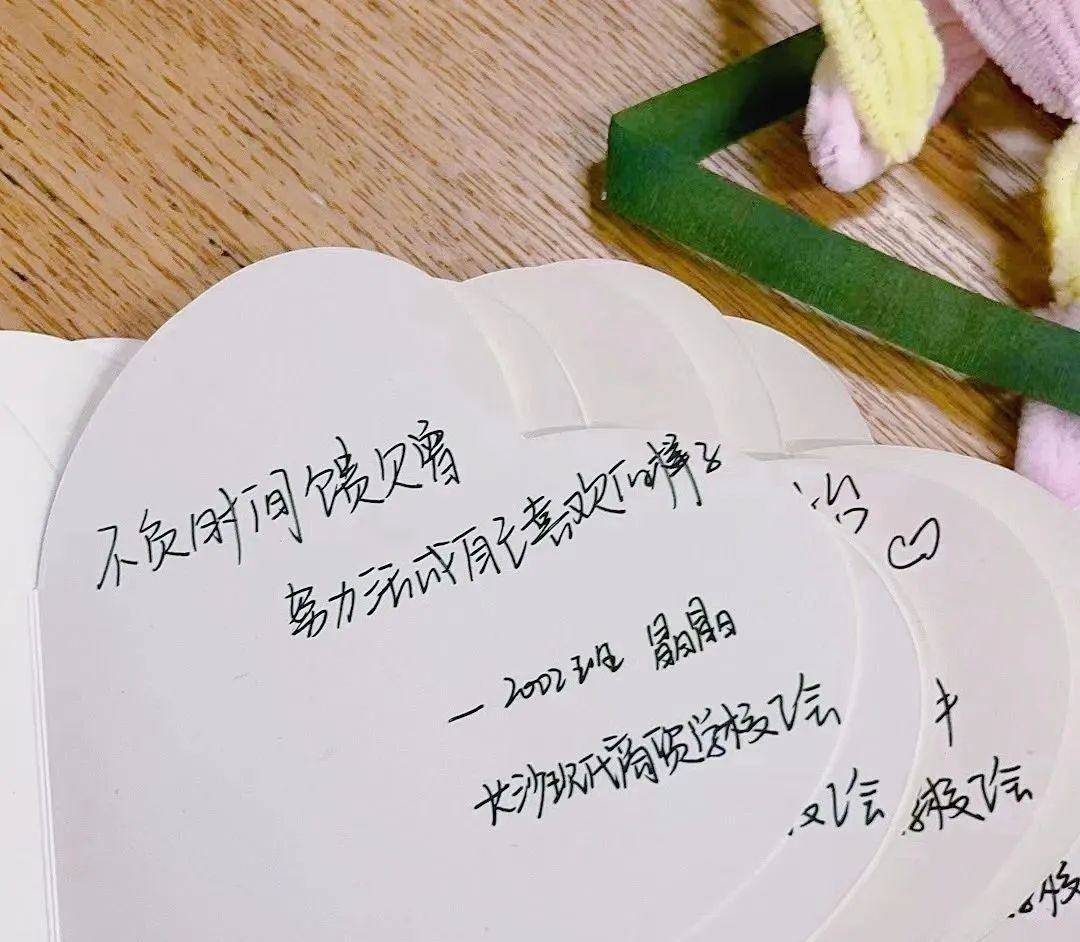 不负时间馈赠
努力活成自己喜欢的样子
—2002班 晶晶
长沙现代商贸学校飞绘
校飞绘
学校飞绘
校